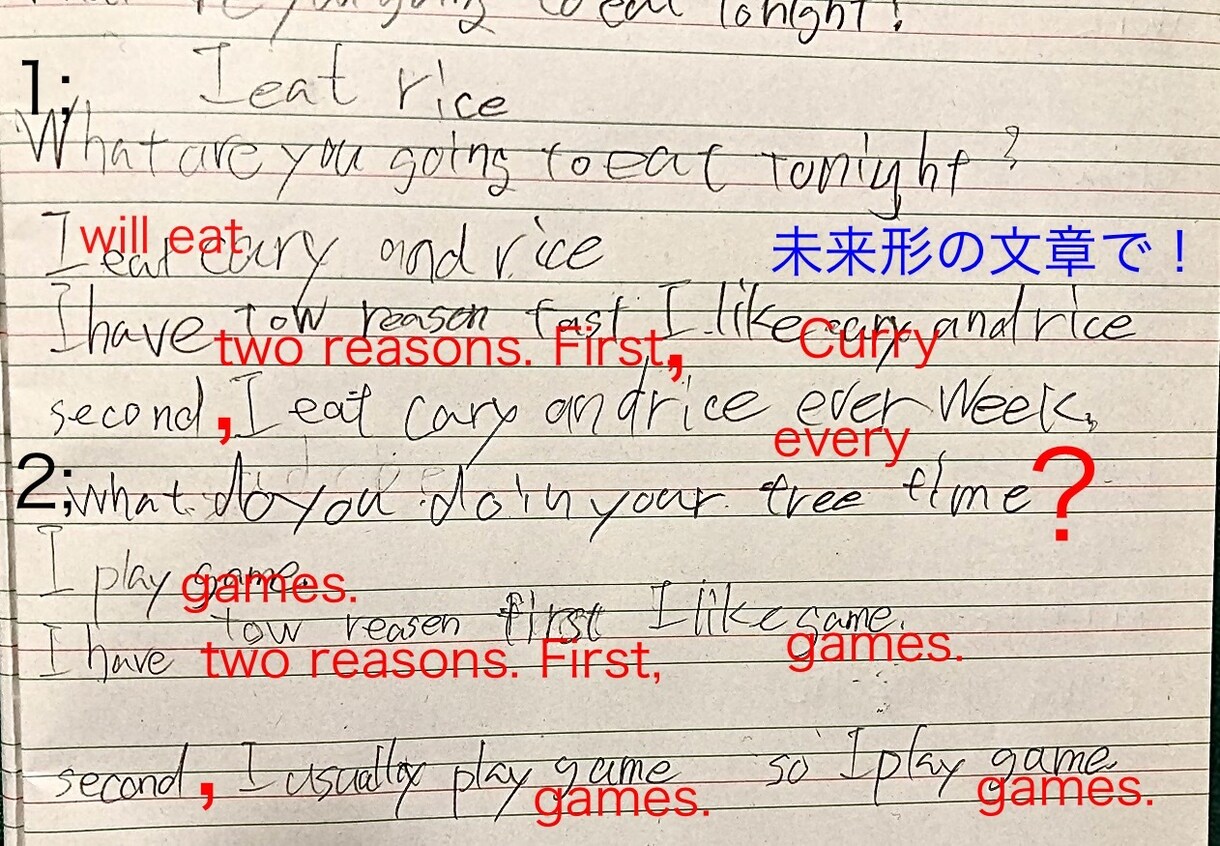 going to eat tonight?
1; I eat rice
What are you going to eat tonight?
I eat cary and rice
will eat
未来形の文章で！
I have tow reason fast I like cary and rice
two reasons. First, Curry
second , I eat cary and rice ever Week,
every
2; what do you do in your free time ?
I play game.
games.
tow reasen first I like game.
I have two reasons. First, games.
second , I usually play game so I play game
games. games.